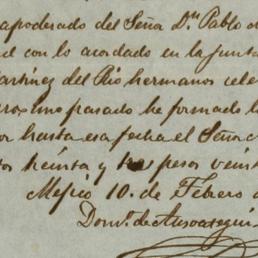 apoderado del Señor Dn. Pablo de
d con lo acordado en la junta
Martinez del Rio hermanos cele
ximo pasado he formado l
or hasta esa fecha el Señor
tos treinta y tres pesos vein
Mejico 10. de Febrero
Domo. de Ansoategui